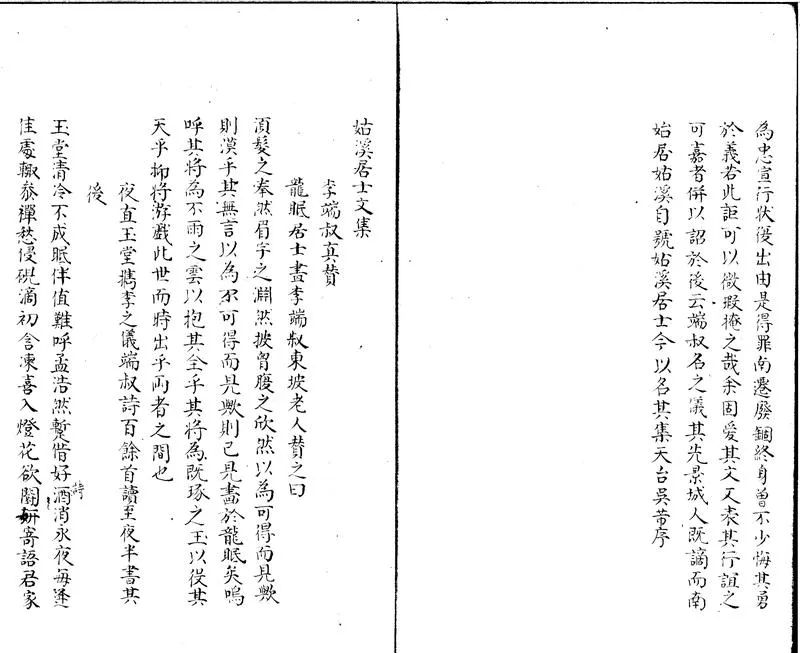 為忠宣行狀後出由是得罪南遷廢錮終身曾不少悔其勇
於義若此詎可以微瑕掩之哉余固愛其文又表其行誼之
可嘉者併以詔於後云端叔名之儀其先景城人既謫而南
始居姑溪自號姑溪居士今以名其集天台吳芾序
姑溪居士文集
李端叔真贊
龍眠居士畫李端叔東坡老人贊之曰
湏髮之奉然眉宇之淵然披胷腹之欣然以為可得而見歟
則漠乎其無言以為不可得而見歟則已見畵於龍眠矣嗚
呼其將為不雨之雲以抱其全乎其將為既琢之玉以役其
天乎抑将游戲此世而時出乎两者之間也
夜直玉堂攜李之儀端叔詩百餘首讀至夜半書其
後
玉堂清冷不成眠伴直難呼孟浩然暫借好酒消永夜每逢
詩
佳處輒叅禪愁侵硯滴初含凍喜入燈花欲鬪妍寄語君家